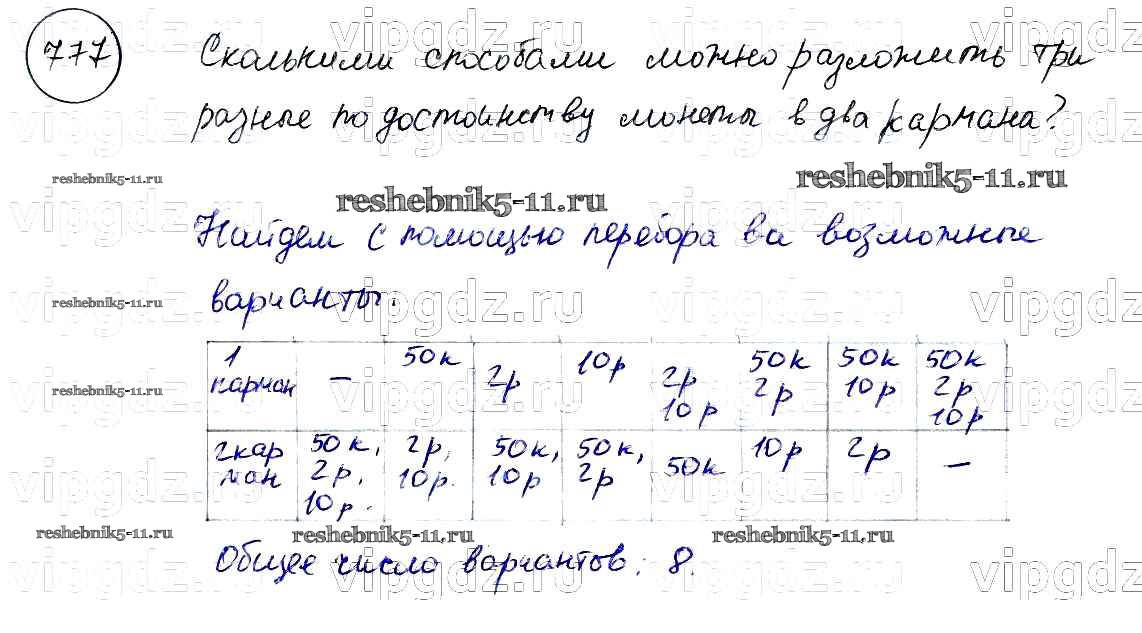 777
Сколькими способами можно разложить три
разные по достоинству монеты в два кармана?
reshebnik5-11.ru
reshebnik5-11.ru
reshebnik5-11.ru
Найдем с помощью перебора вс возможные
варианты.
reshebnik5-11.ru
1 карман | – | 50к | 2р | 10р | 2р 10р | 50к 2р | 50к 10р | 50к 2р 10р
reshebnik5-11.ru
2 карман | 50к, 2р, 10р. | 2р, 10р. | 50к, 10р | 50к, 2р | 50к | 10р | 2р | –
reshebnik5-11.ru
reshebnik5-11.ru
reshebnik5-11.ru
Общее число вариантов: 8.
vipgdz.ru